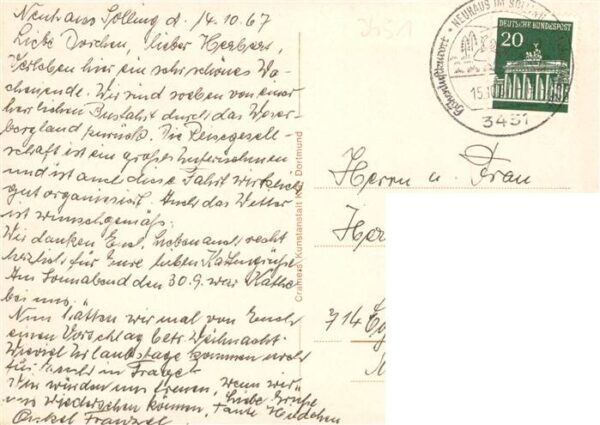 Neuhaus Solling d. 14.10.67
Liebe Dorchen, lieber Herbert,
Verleben hier ein sehr schönes Wo-
chenende. Wir sind soeben von einer
herrlichen Busfahrt durch das Weser-
bergland zurück. Die Reisegesell-
schaft ist ein großes Unternehmen
und ist auch diese Fahrt wirklich
gut organisiert. Auch das Wetter
ist wunschgemäß.
Wir danken Euch, Lieben auch recht
herzlich für Eure lieben Kartengrüße
Am Sonnabend den 30.9. war Käthe
bei uns.
Nun hätten wir mal von Euch
einen Vorschlag betr. Weihnacht.
Wieviel Urlaubstage kommen wohl
für Euch in Frage?
Wir würden uns freuen, wenn wir
uns wiedersehen können, Liebe Grüße
Onkel Franzel, Tante
3451
NEUHAUS IM SOLLING
Höhenluftkurort
15.10
3451
DEUTSCHE BUNDESPOST
20
Cramers Kunstanstalt KG, Dortmund
Herrn u. Frau
Her
714